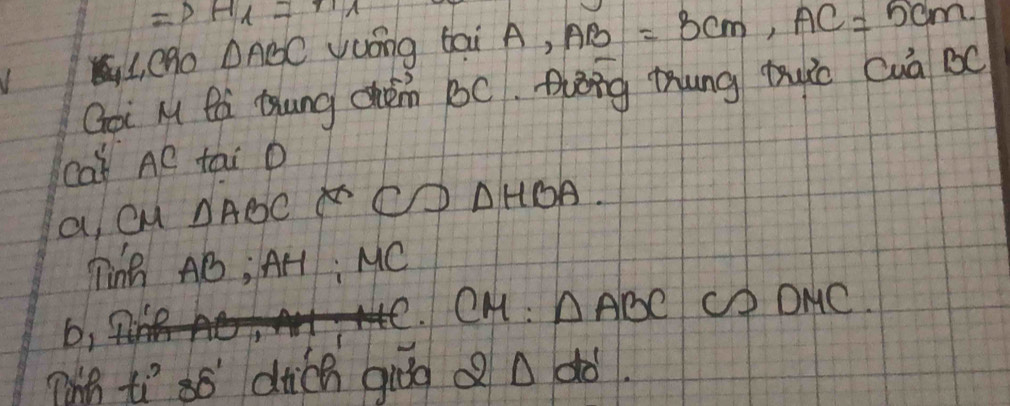 => H₁ =
1, Cho ΔABC vuông tại A, AB = 3cm, AC = 5cm.
Gọi M là trung điểm BC. Đường trung trực của BC
cắt AC tại D
a, CM ΔABC ∽ ΔHBA.
Tính AB; AH; MC
b, CM: ΔABC ∽ DMC.
Tính tỉ số dtích giữa 2 Δ đó.